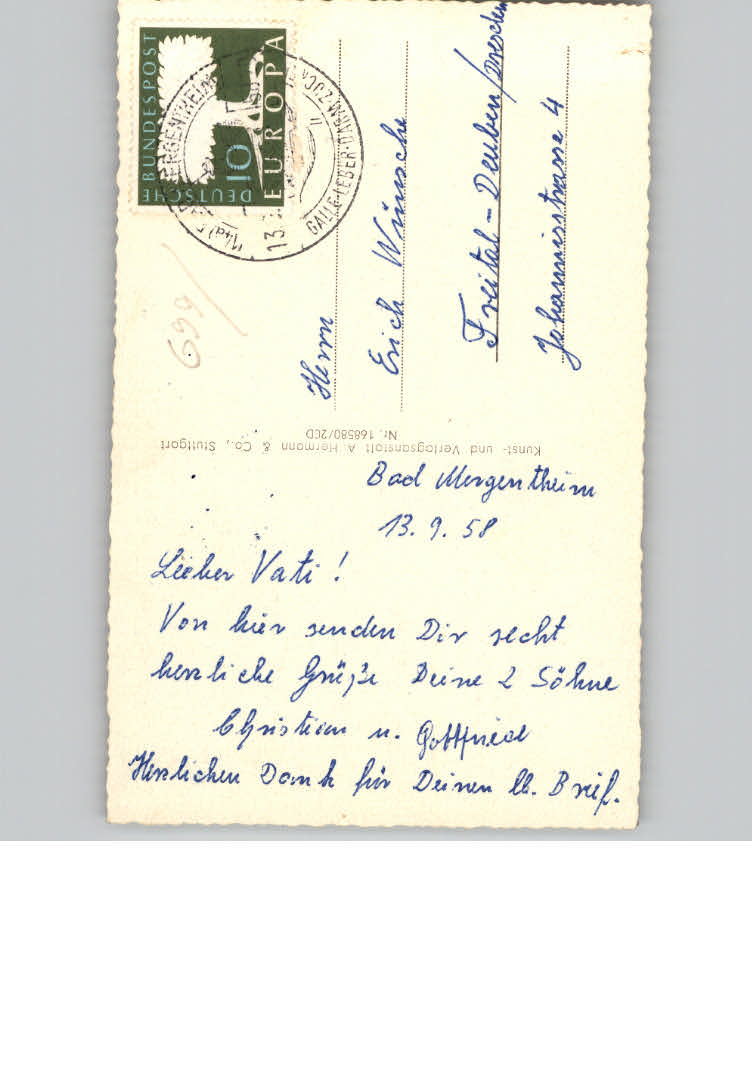 DEUTSCHE BUNDESPOST
10
EUROPA
BAD MERGENTHEIM
(14a)
13.
GALLE-LEBER-DARM-ZUCK
699
Herrn
Erich Wünsche
Freital-Deuben/Dresden
Johannisstrasse 4
Kunst- und Verlagsanstalt A. Hermann & Co., Stuttgart
Nr. 168580/2CD
Bad Mergentheim
13. 9. 58
Lieber Vati!
Von hier senden Dir recht
herzliche Grüße Deine 2 Söhne
Christian u. Gottfried
Herzlichen Dank für Deinen lb. Brief.